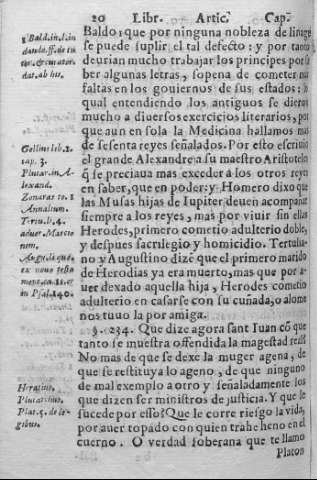 20 Libr. Artic. Cap.
1 Bald. in.l. in
Baldo: que por ninguna nobleza de linage
se puede suplir el tal defecto: y por tanto
deurian mucho trabajar los principes por sa
dat. ab his.
ber algunas letras, sopena de cometer mu
faltas en los gouiernos de sus estados: lo
qual entendiendo los antiguos se dieron
mucho a diuersos exercicios literarios, por
que aun en sola la Medicina hallamos mas
Gellius lib. 2.
de sesenta reyes señalados. Por esto escriuio
cap. 3.
el grande Alexandre a su maestro Aristoteles
Plutar. in A-
q̃ se preciaua mas exceder a los otros reyes
lexand.
en saber, que en poder: y Homero dixo que
Zonaras to. 1
las Musas hijas de Iupiter deuen acompañar
Annalium.
siempre a los reyes, mas por viuir sin ellas
Tertu. l. 4.
Herodes, primero cometio adulterio doble,
aduer. Marcio
y despues sacrilegio y homicidio. Tertulia-
num.
no y Augustino dizẽ que el primero marido
de Herodias ya era muerto, mas que por a-
uer dexado aquella hija, Herodes cometio
adulterio en casarse con su cuñada, o alome
in Psal. 140.
nos tuuo la por amiga.
§. 234. Que dize agora sant Iuan cõ que
tanto se muestra offendida la magestad real?
No mas de que se dexe la muger agena, de
que se restituya lo ageno, de que ninguno
de mal exemplo a otro y señaladamente los
Plutarchus.
que dizen ser ministros de justicia. Y que le
Plat. 5. de le-
sucede por esso? Que le corre riesgo la vida,
gibus.
por auer topado con quien trahe heno en el
cuerno. O verdad soberana que te llamo
Platon